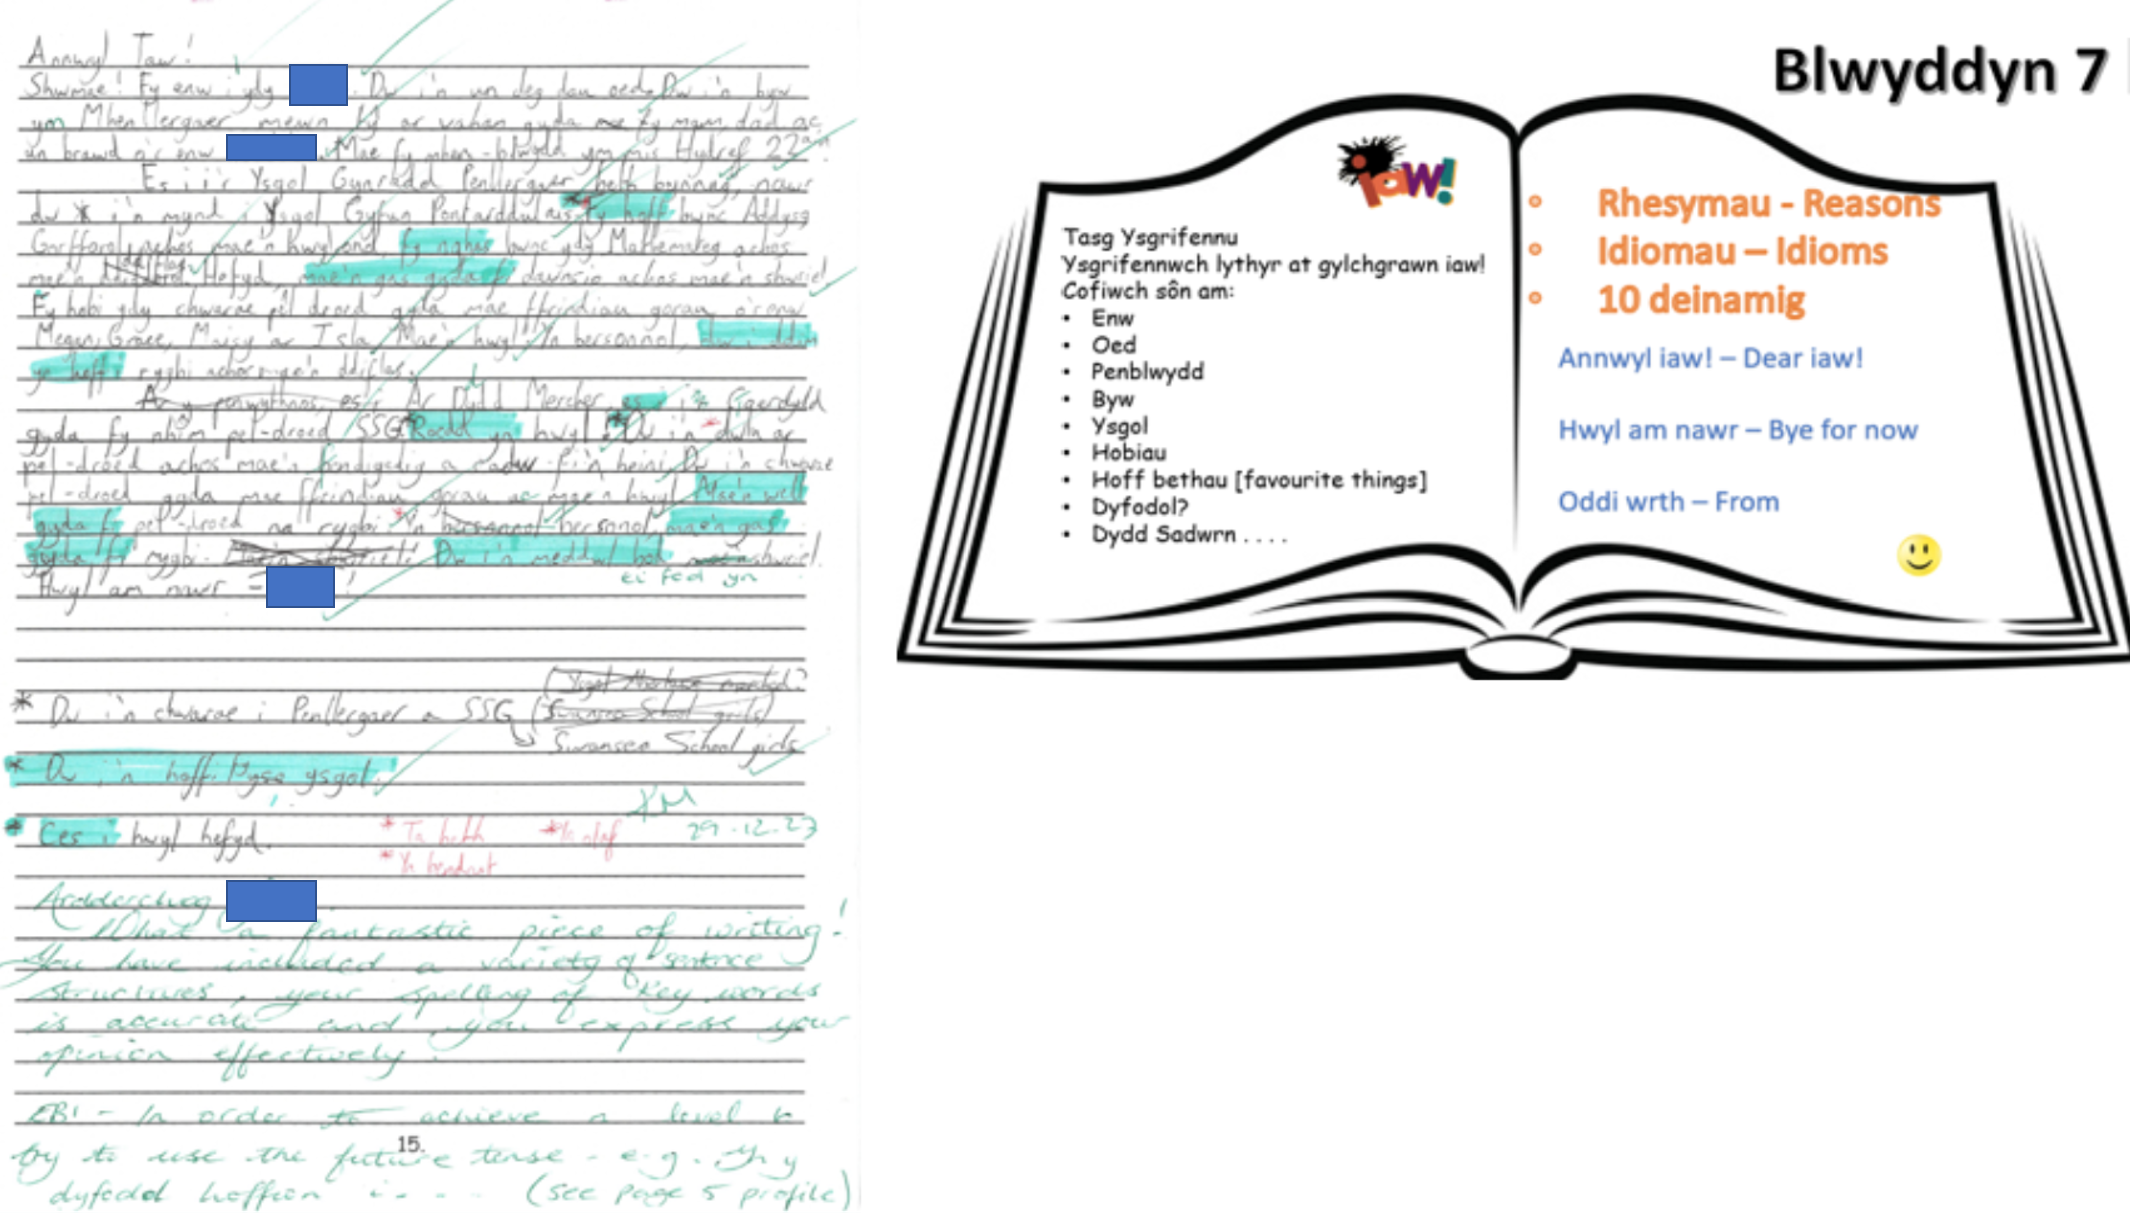 Annwyl Iaw!
Shwmae! Fy enw i ydy . Dw i'n un deg dau oed. Dw i'n byw
ym Mhenllergaer mewn tŷ ar wahan gyda fy mam, dad ac
un brawd o'r enw . Mae fy mhen-blwydd ym mis Hydref 22ain
Es i i'r Ysgol Gynradd Penllergaer beth bynnag, nawr
dw * i'n mynd i Ysgol Gyfun Pontarddulais. Fy hoff bwnc Addysg
Gorfforol achos mae'n hwyl ond fy nghas bwnc ydy Mathemateg achos
mae'n ddiflas. Hefyd, mae'n gas gyda fi dawnsio achos mae'n shwriel
Fy hobi ydy chwarae pêl droed gyda mae ffrindiau gorau o'r enw
Megan, Grace, Maisy ac Isla. Mae'n hwyl! Yn bersonol, dw i ddim
yn hoffi rygbi achos mae'n ddiflas.
Ar y penwythnos, es i Ar Dydd Mercher, es i i Gaerdydd
gyda fy nhîm pel-droed SSG. Roedd yn hwyl! * Dw i'n dwlu ar
pel-droed achos mae'n fendigedig a cadw fi'n heini. Dw i'n chwarae
pel-droed gyda mae ffrindiau gorau ac mae'n hwyl. Mae'n well
gyda fi pel-droed na rygbi. * Yn bersonol, mae'n gas
gyda fi rygbi - Dw i'n meddwl bod mae'n shwriel.
ei fod yn
Hwyl am nawr - !
* Dw i'n chwarae i Penllergaer a SSG (Swansea School girls)
Swansea School girls
* Dw i'n hoffi ysgol.
* Ces i hwyl hefyd.
* Ta beth * Yn olaf
* Yn bendant
29-12-23
Ardderchog
What a fantastic piece of writing!
You have included a variety of sentence
structures, your spelling of key words
is accurate and you express your
opinion effectively.
EBI - In order to achieve a level 6
15.
try to use the future tense - e.g. Yn y
dyfodol hoffwn i - - - (see page 5 profile)
Blwyddyn 7
iaw!
Tasg Ysgrifennu
Ysgrifennwch lythyr at gylchgrawn iaw!
Cofiwch sôn am:
• Enw
• Oed
• Penblwydd
• Byw
• Ysgol
• Hobiau
• Hoff bethau [favourite things]
• Dyfodol?
• Dydd Sadwrn . . . .
• Rhesymau - Reasons
• Idiomau – Idioms
• 10 deinamig
Annwyl iaw! – Dear iaw!
Hwyl am nawr – Bye for now
Oddi wrth – From